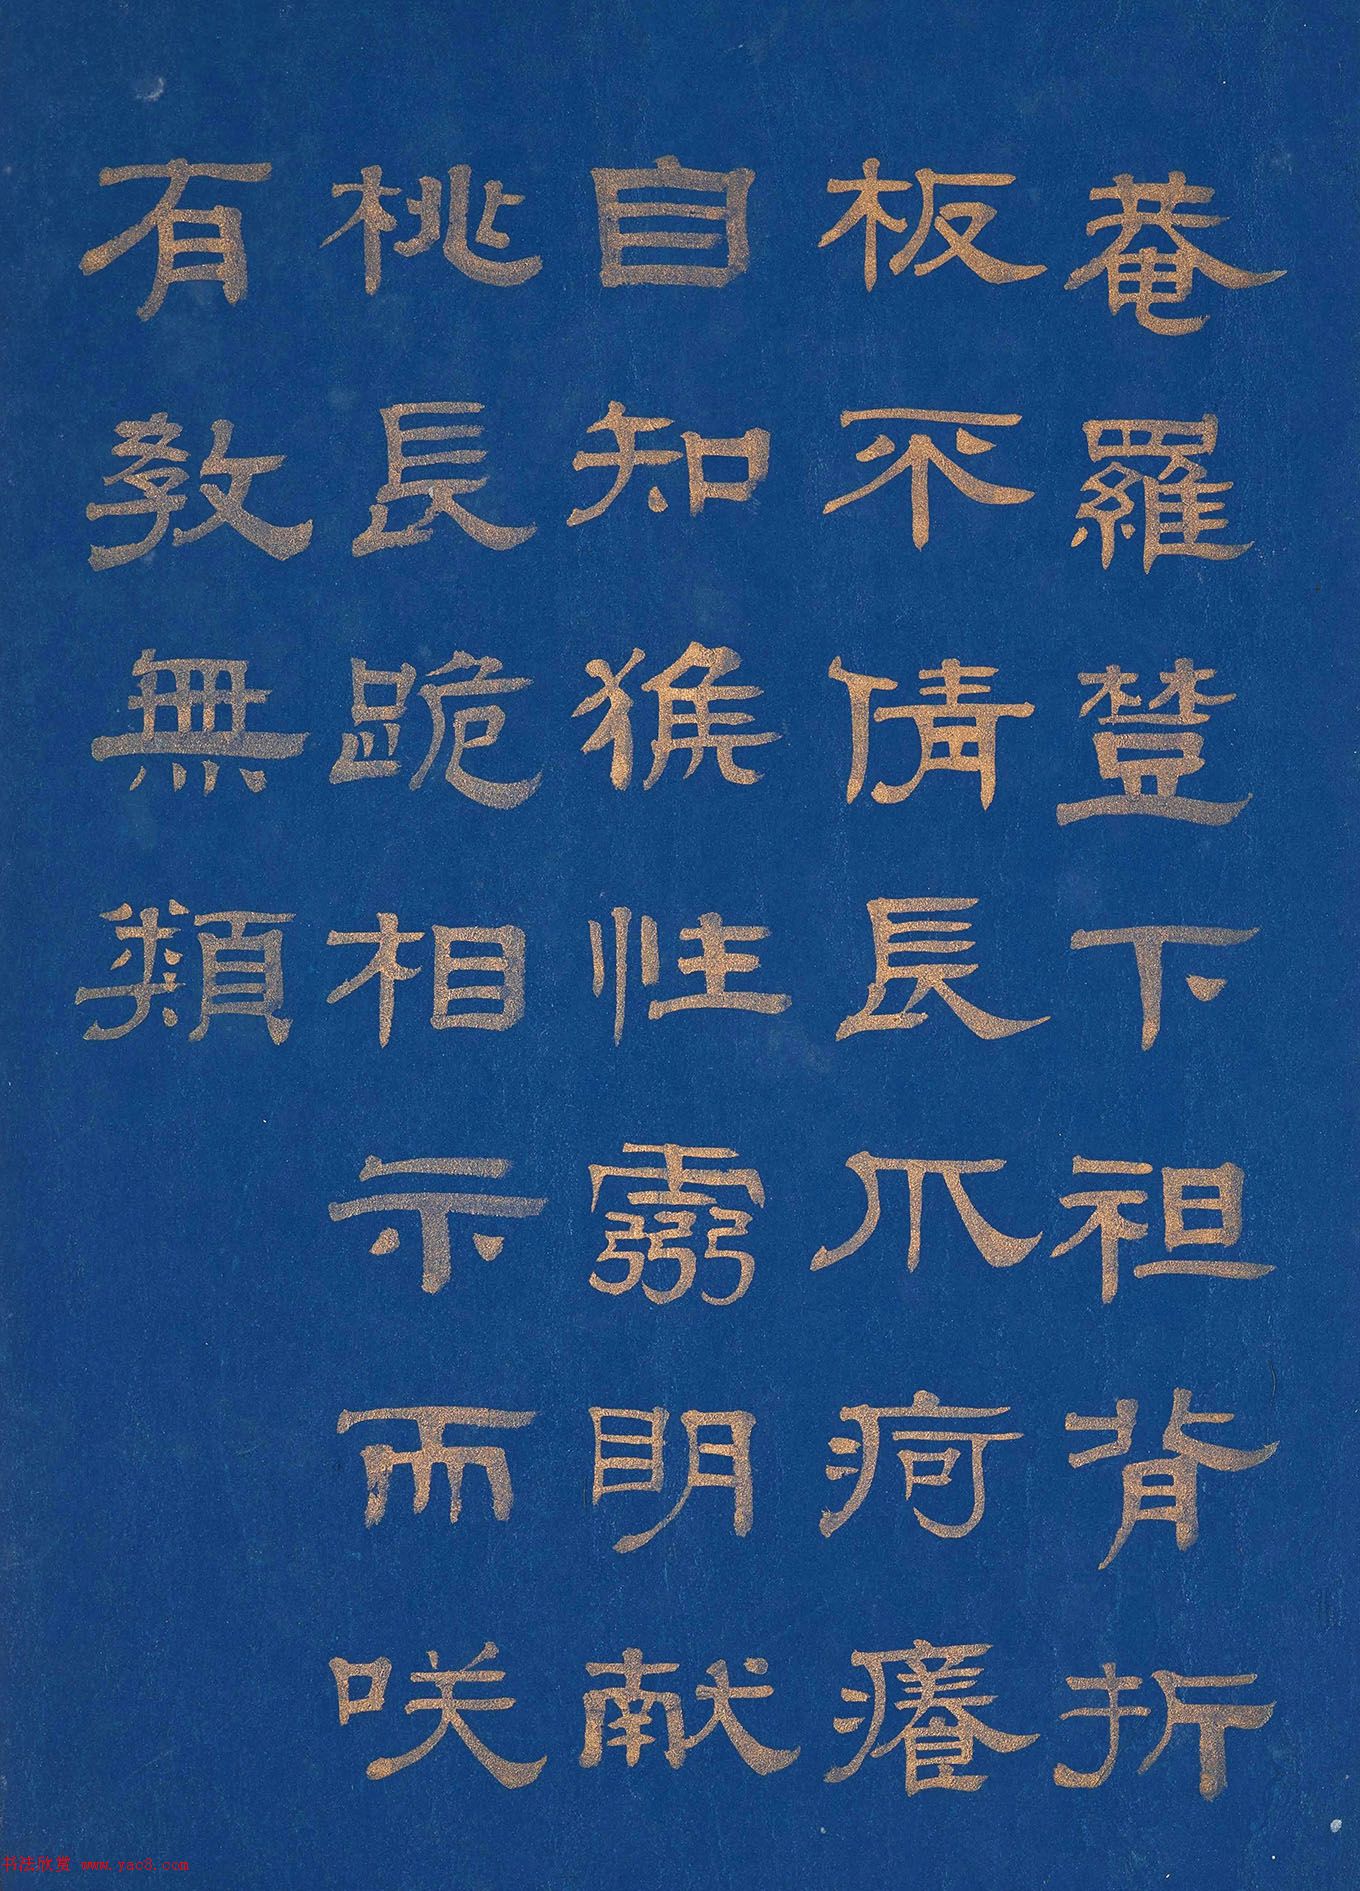 菴羅荳下袒背折
板不倩長爪疴癢
自知猴性霛明献
桃長跪相示而咲
有教無類
书法欣赏 www.yac8.com